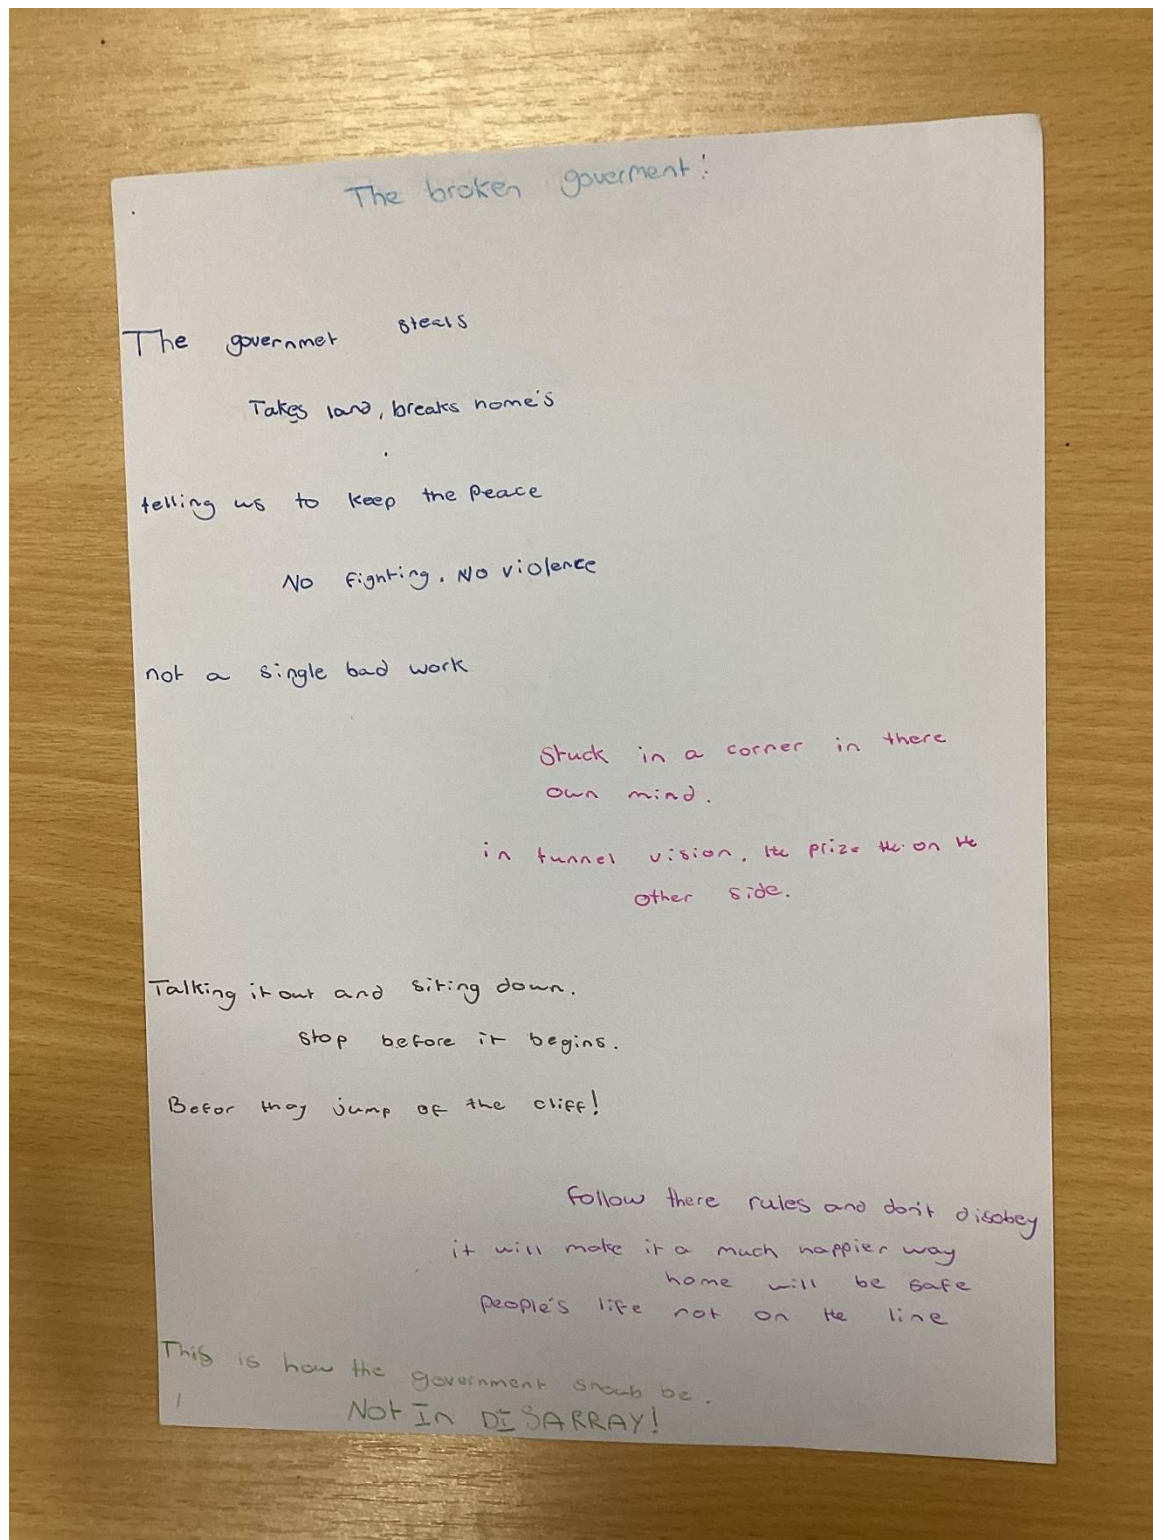 The broken goverment!
The governmet steals
Takes land, breaks home's
telling us to keep the Peace
No fighting. No violence
not a single bad work
Stuck in a corner in there
own mind.
in tunnel vision, the prize on the
other side.
Talking it out and siting down.
stop before it begins.
Befor they jump of the cliff!
Follow there rules and don't disobey
it will make it a much happier way
home will be safe
People's life not on the line
This is how the government shoub be.
Not In DISARRAY!